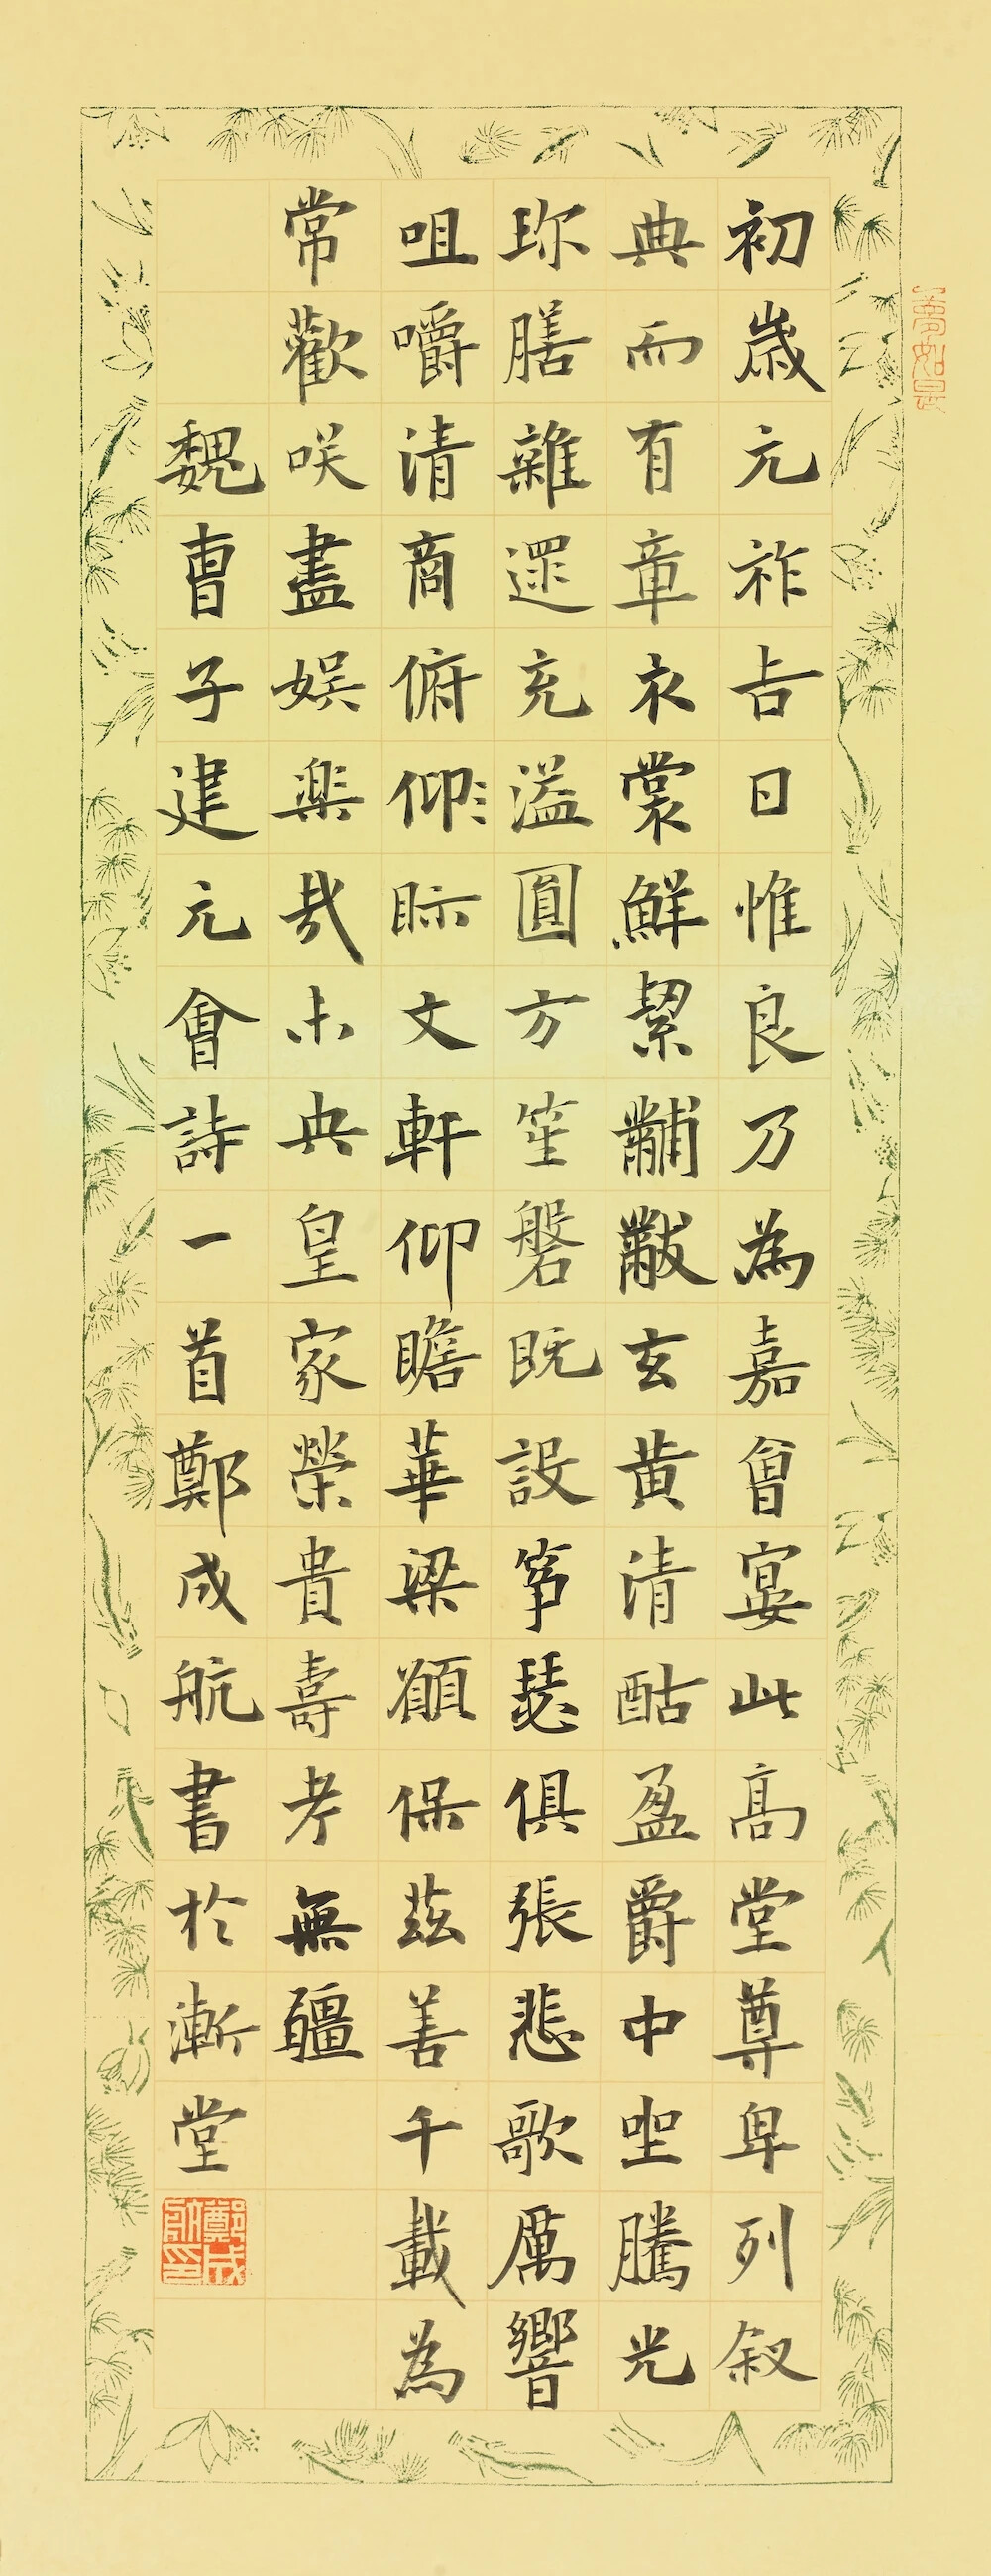 一夢如是
初歲元祚吉日惟良乃為嘉會宴此高堂尊卑列叙
典而有章衣裳鮮絜黼黻玄黃清酤盈爵中坐騰光
珎膳雜遝充溢圓方笙磬既設筝瑟俱張悲歌厲響
咀嚼清商俯仰眎文軒仰瞻華梁願保茲善千載為
常歡咲盡娱樂哉未央皇家榮貴壽考無疆
魏曹子建元會詩一首鄭成航書於漸堂
鄭成航印